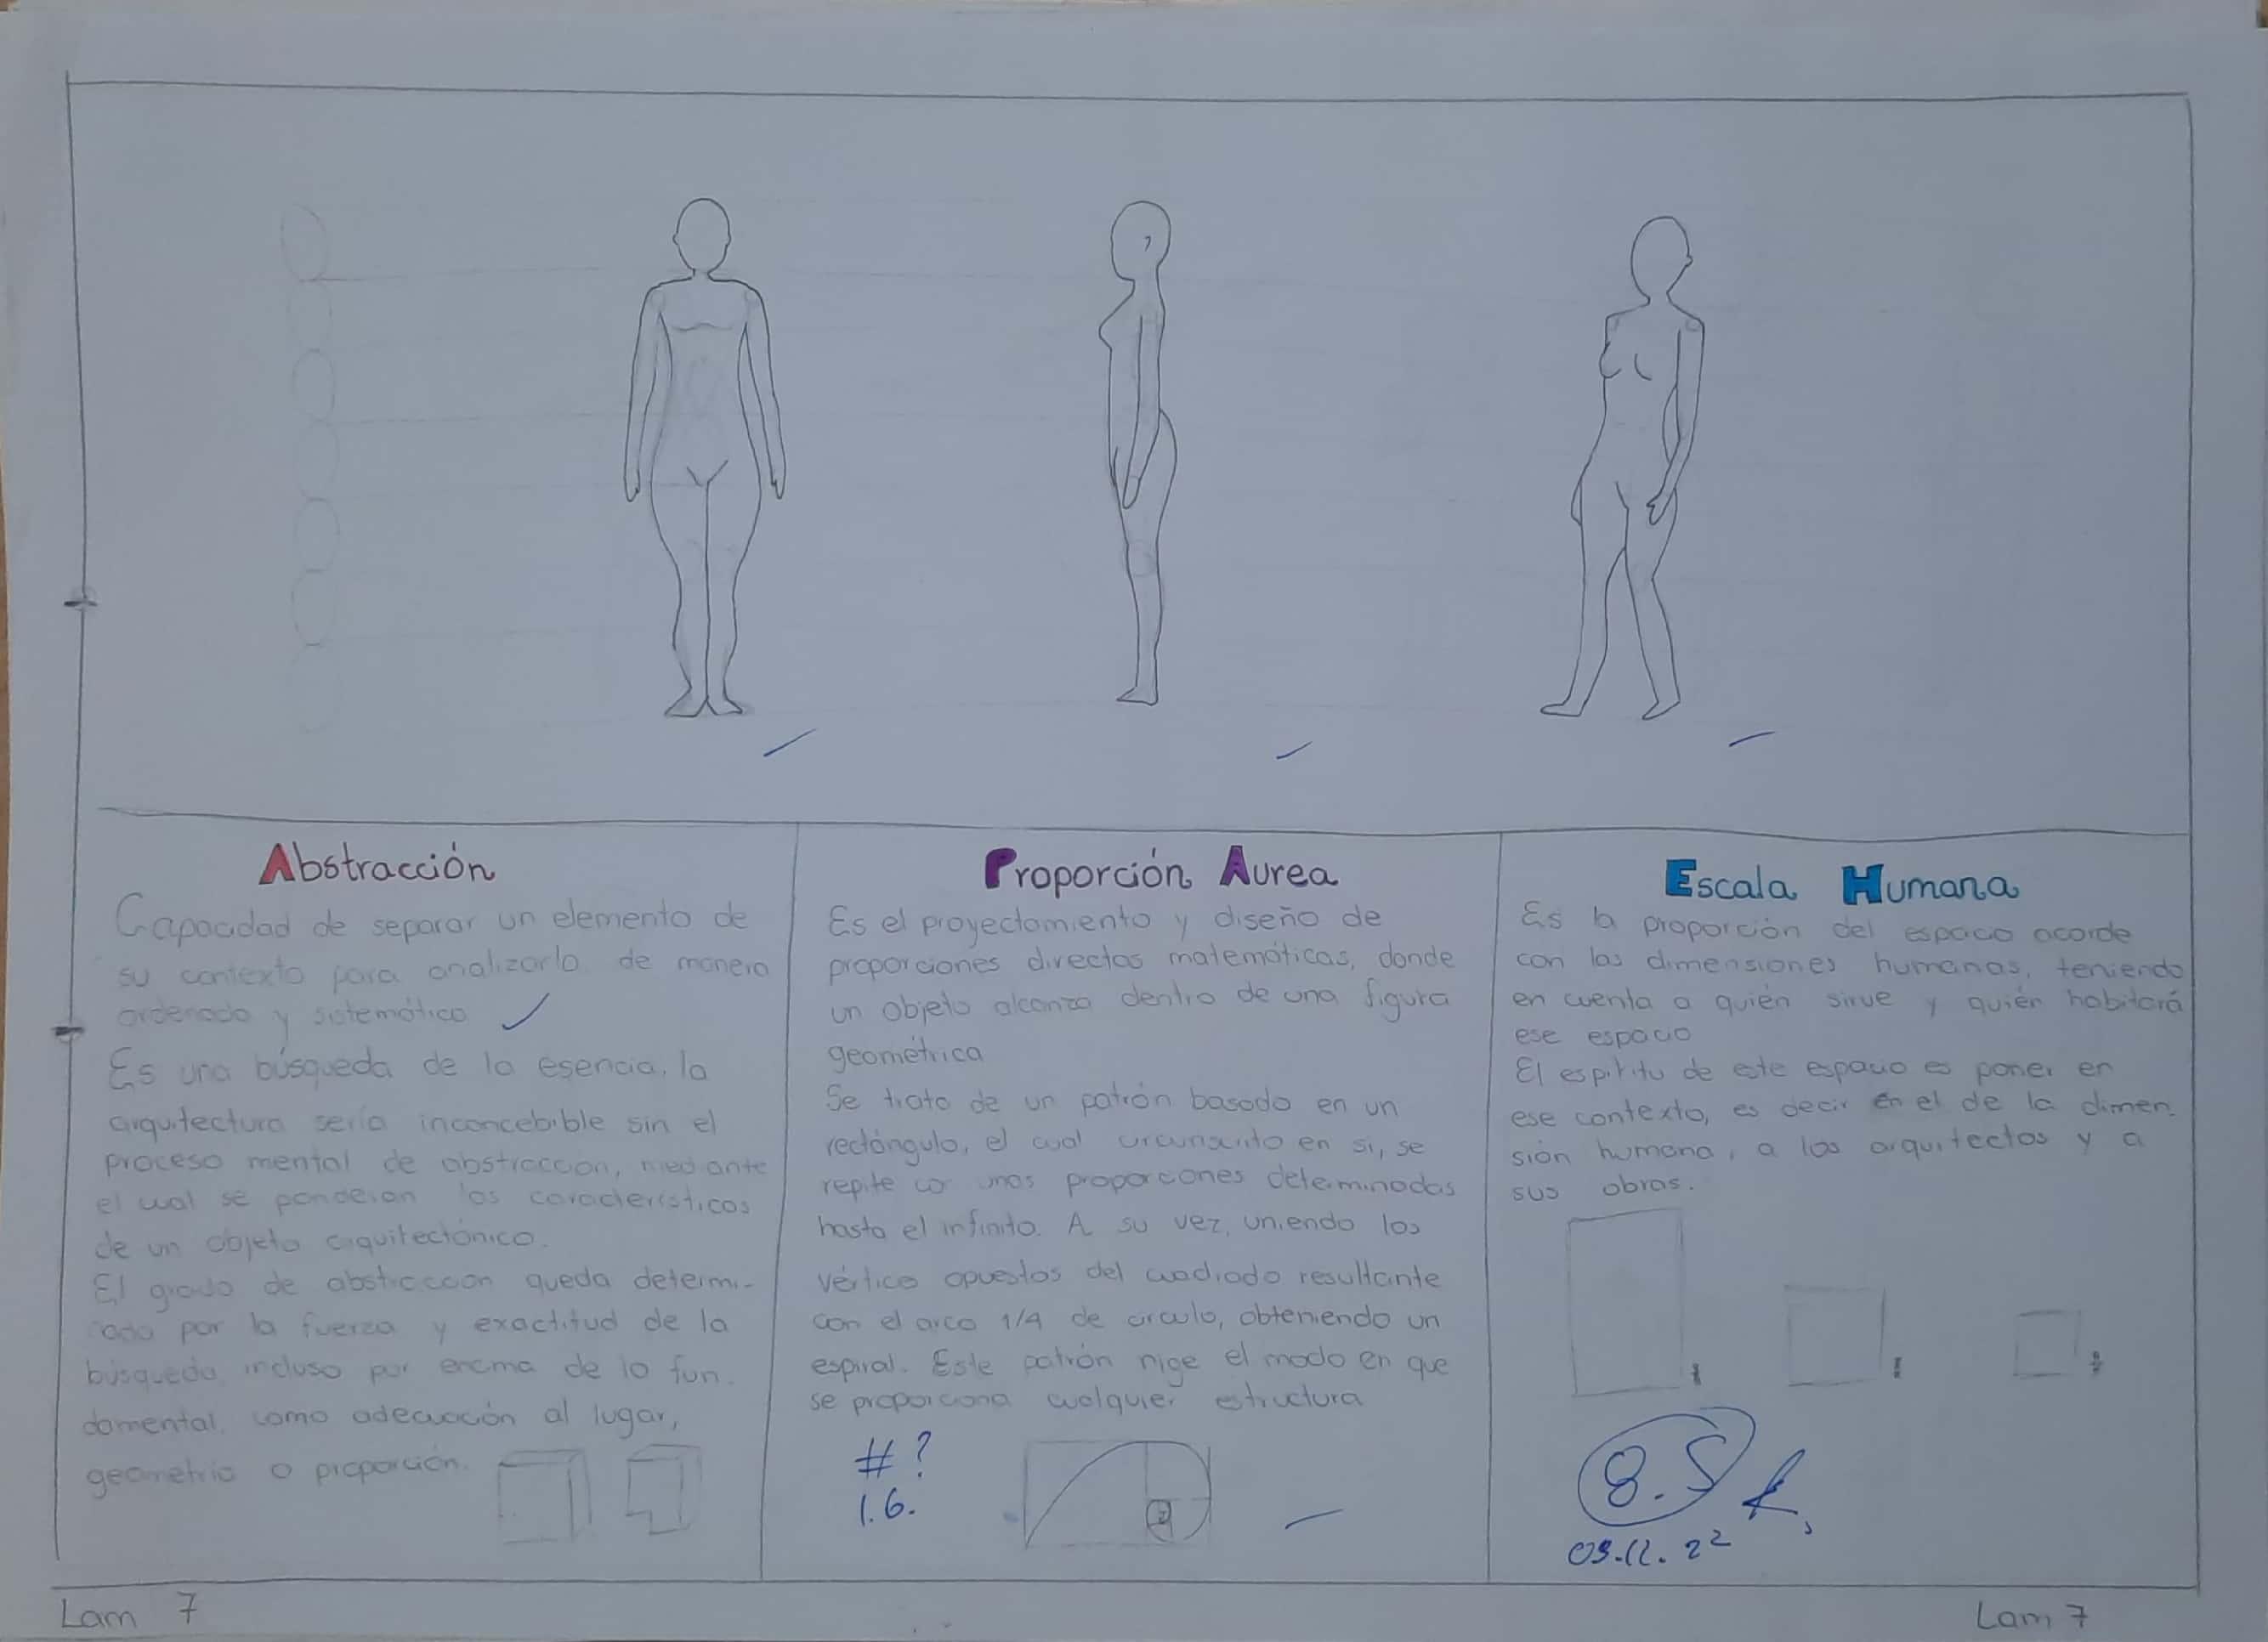 Abstracción
Capacidad de separar un elemento de
su contexto para analizarlo de manera
ordenada y sistemática
Es una búsqueda de la esencia, la
arquitectura sería inconcebible sin el
proceso mental de abstracción, mediante
el cual se ponderan las características
de un objeto arquitectónico.
El grado de abstracción queda determi-
nado por la fuerza y exactitud de la
búsqueda incluso por encima de lo fun-
damental, como adecuación al lugar,
geometría o proporción.
Proporción Aurea
Es el proyectamiento y diseño de
proporciones directas matemáticas, donde
un objeto alcanza dentro de una figura
geométrica
Se trata de un patrón basado en un
rectángulo, el cual circunscrito en si, se
repite con unas proporciones determinadas
hasta el infinito. A su vez, uniendo los
vértice opuestos del cuadrado resultante
con el arco 1/4 de circulo, obteniendo un
espiral. Este patrón rige el modo en que
se proporciona cualquier estructura
# ?
1.6.
Escala Humana
Es la proporción del espacio acorde
con las dimensiones humanas, teniendo
en cuenta a quién sirve y quién habitará
ese espacio
El espiritu de este espacio es poner en
ese contexto, es decir en el de la dimen-
sión humana, a los arquitectos y a
sus obras.
8.5
Lam 7
Lam 7